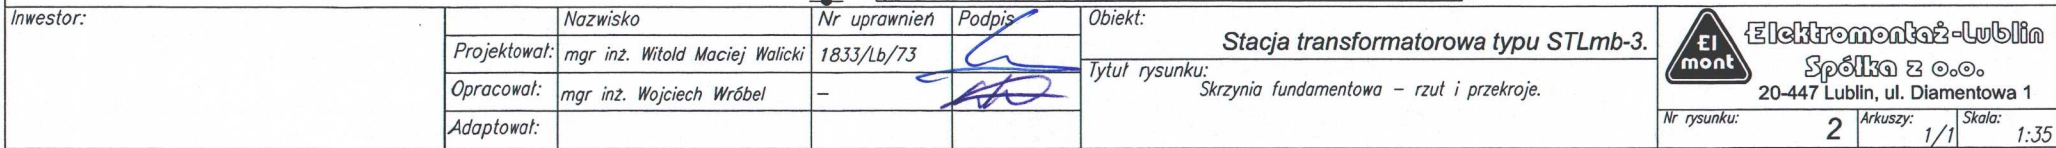 Inwestor:
Nazwisko
Nr uprawnień
Podpis
Projektował:
mgr inż. Witold Maciej Walicki
1833/Lb/73
Opracował:
mgr inż. Wojciech Wróbel
–
Adaptował:
Obiekt:
Stacja transformatorowa typu STLmb-3.
Tytuł rysunku:
Skrzynia fundamentowa – rzut i przekroje.
El
mont
Elektromontaż-Lublin
Spółka z o.o.
20-447 Lublin, ul. Diamentowa 1
Nr rysunku:
2
Arkuszy:
1/1
Skala:
1:35